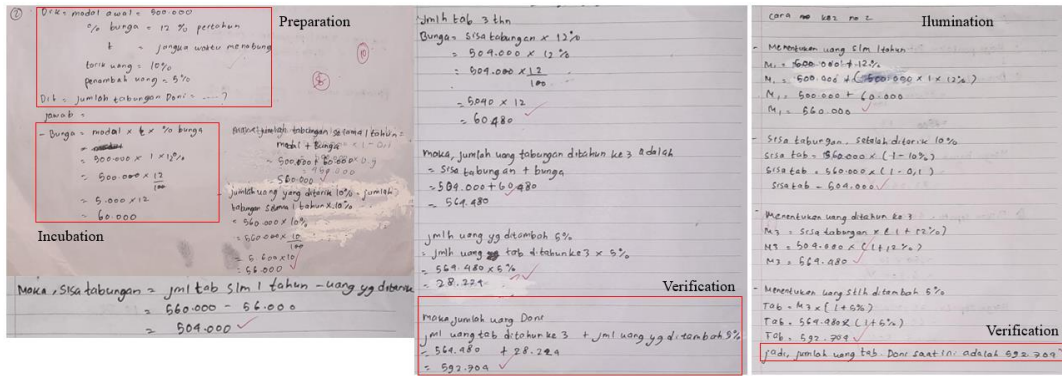 Preparation
② Dik = modal awal = 500.000
% bunga = 12 % pertahun
t = jangka waktu menabung
tarik uang = 10%
penambah uang = 5%
Dit = jumlah tabungan Doni = ....?
jawab =
- Bunga = modal x t x % bunga
= 500.000 x 1 x 12%
= 500.000 x 12/100
= 5.000 x 12
= 60.000
Incubation
maka, jumlah tabungan selama 1 tahun =
modal + Bunga
= 500.000 + 60.000
560.000
- jumlah uang yang ditarik 10% = jumlah
tabungan selama 1 tahun x 10%
= 560.000 x 10%
= 560.000 x 10/100
= 5.600 x 10
= 56.000
Maka, sisa tabungan = jml tab slm 1 tahun - uang yg ditarik
= 560.000 - 56.000
= 504.000
Jmlh tab 3 thn
Bunga = sisa tabungan x 12%
= 504.000 x 12%
= 504.000 x 12/100
= 5040 x 12
= 60.480
maka, jumlah uang tabungan ditahun ke 3 adalah
= sisa tabungan + bunga
= 504.000 + 60.480
= 564.480
jmlh uang yg ditambah 5%
= jmlh uang tab ditahun ke 3 x 5%
= 564.480 x 5%
= 28.224
Verification
maka, jumlah uang Doni
jml uang tab ditahun ke 3 + jml uang yg ditambah 5%
= 564.480 + 28.224
= 592.704
Ilumination
cara no 2
- Menentukan uang slm 1 tahun
M₁ = 500.000 + 12%
M₁ = 500.000 + (500.000 x 1 x 12%)
M₁ = 500.000 + 60.000
M₁ = 560.000
- Sisa tabungan setelah ditarik 10%
Sisa tab = 560.000 x (1 - 10%)
Sisa tab = 560.000 x (1 - 0,1)
Sisa tab = 504.000
- Menentukan uang ditahun ke 3
M3 = sisa tabungan x (1 + 12%)
M3 = 504.000 x (1 + 12%)
M3 = 564.480
- Menentukan uang stlh ditambah 5%
Tab = M3 x (1 + 5%)
Tab = 564.480 x (1 + 5%)
Tab = 592.704
Verification
jadi, jumlah uang tab. Doni saat ini adalah 592.704